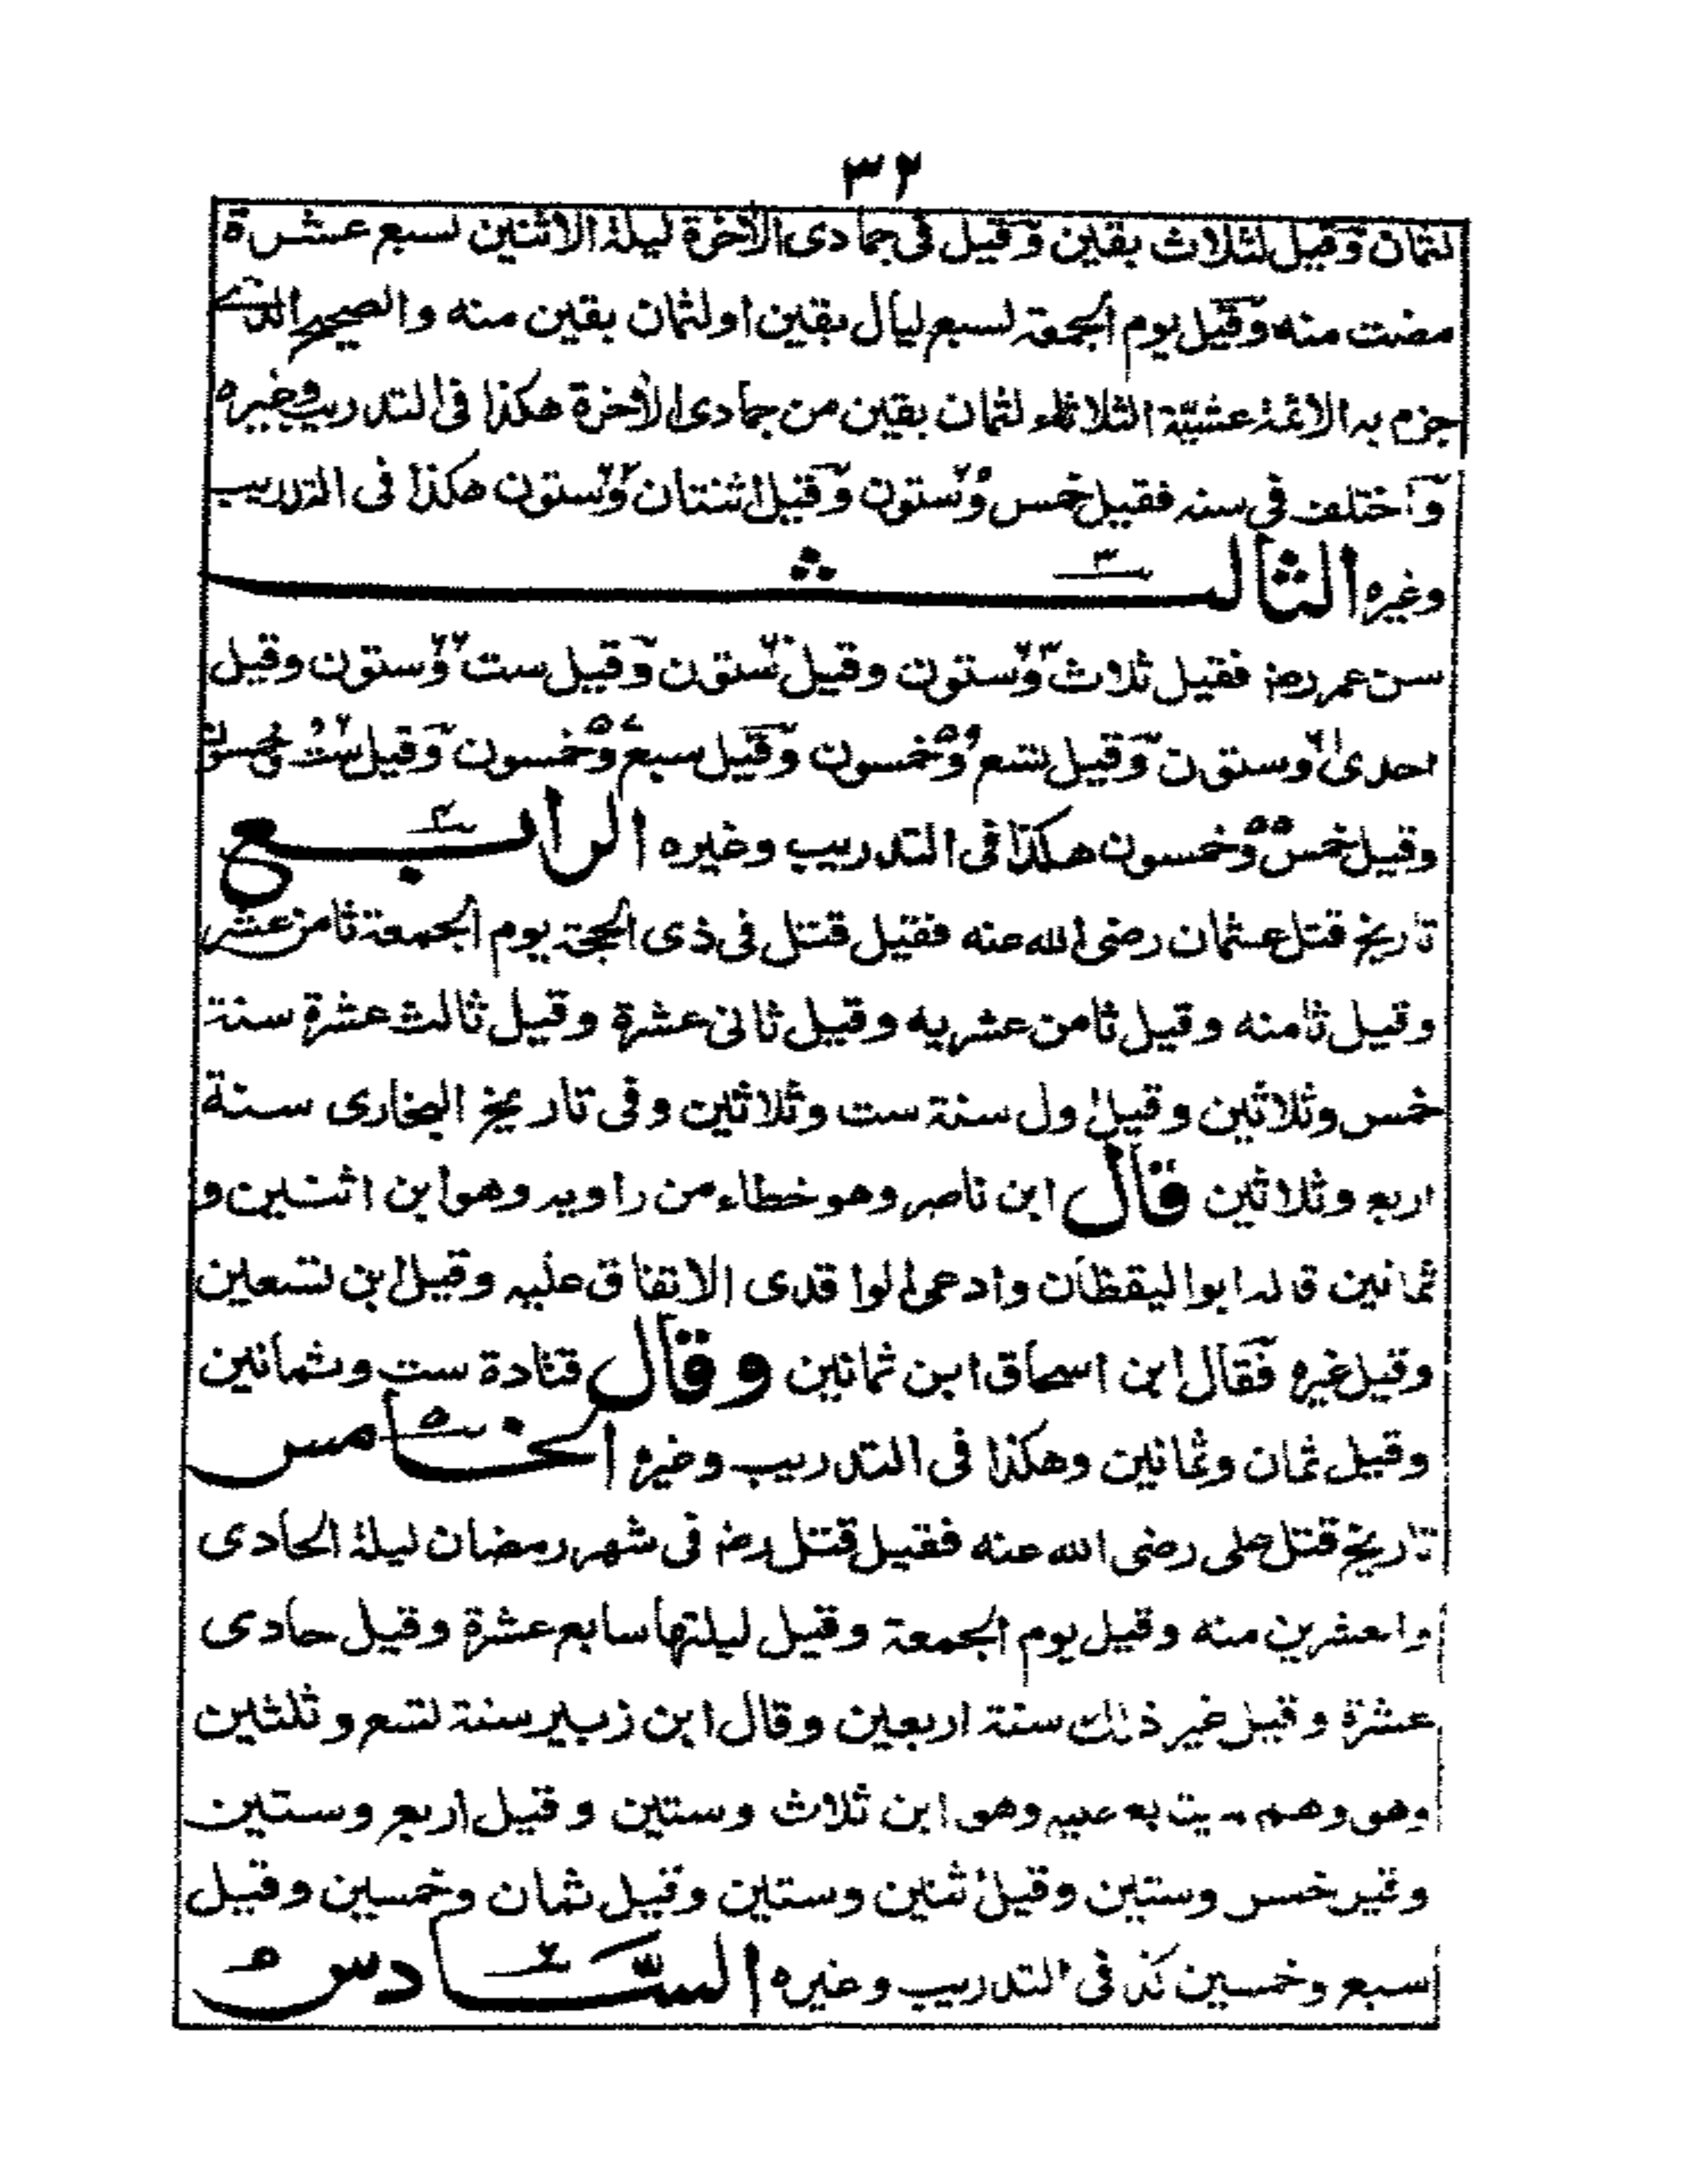 ٣٢
لثمان وقيل لثلاث بقين وقيل فى جمادى الأخرة ليلة الاثنين لسبع عشرة
مضت منه وقيل يوم الجمعة لسبع ليال بقين او لثمان بقين منه والصحيح الذى
جزم به الائمة عشيّة الثلاثاء لثمان بقين من جمادى الأخرة هكذا فى التدريب وغيره
وأختلف فى سنه فقيل خمس وستون وقيل اثنتان وستون هكذا فى التدريب
وغيره الثالث ٣
سن عمر رضـ فقيل ثلاث وستون وقيل ستون وقيل ست وستون وقيل
احدى وستون وقيل تسع وخمسون وقيل سبع وخمسون وقيل ست وخمسون
وقيل خمس وخمسون هكذا فى التدريب وغيره الرابع ٤
تاريخ قتل عثمان رضى الله عنه فقيل قتل فى ذى الحجة يوم الجمعة ثامن عشر
وقيل ثامنه وقيل ثامن عشريه وقيل ثانى عشرة وقيل ثالث عشرة سنة
خمس وثلاثين وقيل اول سنة ست وثلاثين وفى تاريخ البخارى سنة
اربع وثلاثين قال ابن ناصر وهو خطاء من راويه وهو ابن اثنين و
ثمانين قاله ابو اليقظان وادعى الواقدى الاتفاق عليه وقيل ابن تسعين
وقيل غيره فقال ابن اسحاق ابن ثمانين وقال قتادة ست وثمانين
وقيل ثمان وثمانين وهكذا فى التدريب وغيره الخامس ٥
تاريخ قتل على رضى الله عنه فقيل قتل رضـ فى شهر رمضان ليلة الحادى
والعشرين منه وقيل يوم الجمعة وقيل ليلتها سابع عشرة وقيل حادى
عشرة وقيل غير ذلك سنة اربعين وقال ابن زبير سنة تسع وثلثين
وهو وهم به عليه وهو ابن ثلاث وستين وقيل اربع وستين
وقيل خمس وستين وقيل اثنين وستين وقيل ثمان وخمسين وقيل
سبع وخمسين كذا فى التدريب وغيره السَّادس ٦